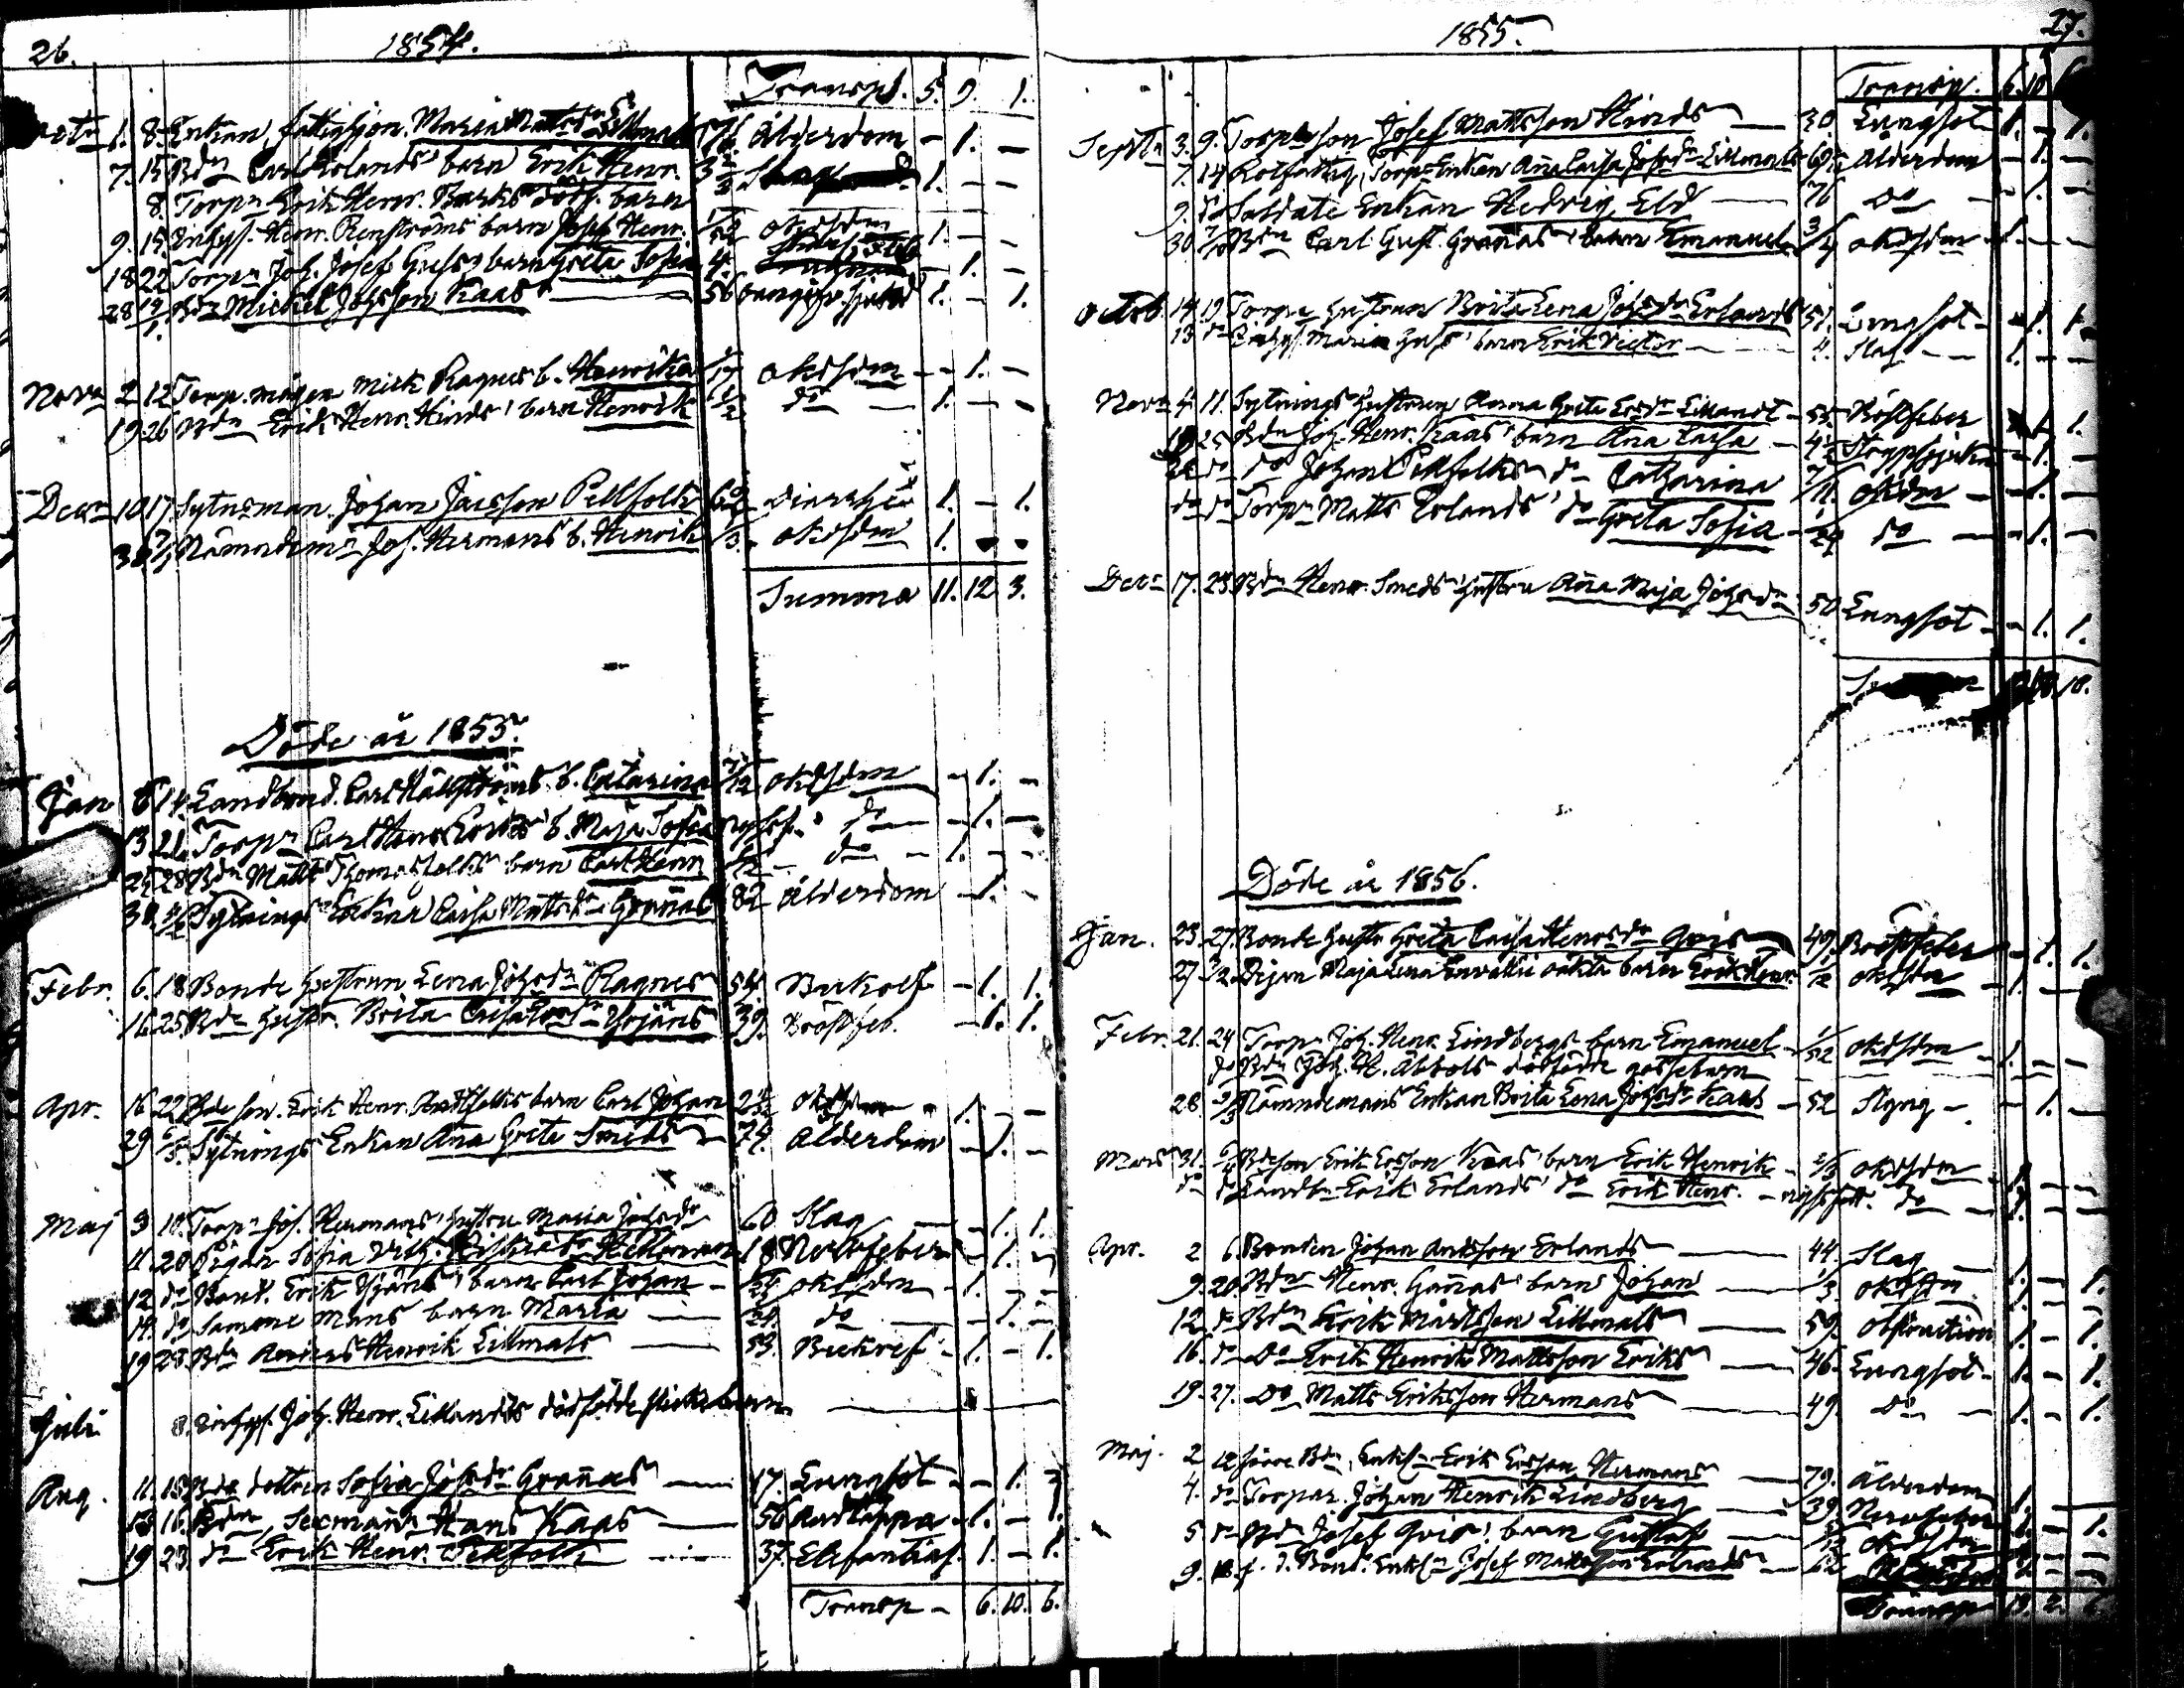 26. 1854.
Transp. 5. 9. 1.
1. 8. Enkan, fattighjon. Maria Mattsdr 76 Ålderdom - 1. -
7. 15 Bdn Carl Erlands' barn Erik Henr. 3 Slag 1. - -
8. Torpn Erik Henr. barn
9. 15. Inhys. Henr. Renströms barn Josef Henr. 1/52 okdsdm 1. - -
18 22 Torpn Joh. Josef barn Greta Sofia 4. - 1. -
28 Bdn Mickel Johsson Kaas 56 1. - 1.
Novr 2 12 Torp. mågen Mick Ragnes b. Henrika okdsdm - 1. -
19 26 Bdn Erik Henr. Hinds' barn Henrik do 1. - -
Decr 10 17. Sytnsman Johan Jacsson Pellfolk Diarrhé 1. - 1.
30 Nämndemn Joh. Hermans b. Henrik 1/3. okdsdm 1.
Summa 11. 12. 3.
Döde år 1855.
Jan 14. Landbond. Carl b. Catarina okdsdm - 1. -
13 21. Torpn Carl Henr b. Maja Sofia nyföd. do - 1. -
25 28 Bdn Matts Thomasfolks barn Carl Henr do 1. - -
30. Sytnings Enkan Caisa Mattsdr Grannas 82 Ålderdom - 1. -
Febr. 6. 18 Bonde hustrun Lena Johsdr Ragnes 54. - 1. 1.
16. 25 Bdn hustr. Brita Caisa 39. Bröstfeb. - 1. 1.
Apr. 16 22 Bde son. Erik Henr. barn Carl Johan okdsdm 1. - -
29 Sytnings Enkan Anna Greta Smeds 74. Ålderdom - 1. -
Maj 3 10. Torpn Joh. Hermans' hustru Maria Johsdr 60. Slag - 1. 1.
11. 20 Pigan Sofia 18 Nervfeber - 1. -
12 do Bond. Erik barn Carl Johan okdsdm 1. - -
14. do Mans barn Maria do - 1. -
19 28. Bdn Anders Henrik Lillmals 53. 1. - 1.
Juli 8. Inhys. Joh. Henr. Lillandts dödfödde flickebarn
Aug. 11. 18 Bde dottren Sofia Johsdr Grannas 17. Lungsot - 1. 1.
13. 16. Bdn, Sexman Hans Kaas 56 Andtäppa 1. - 1.
19 23. do Erik Henr. Pellfolk 37. Elefantias. 1. - 1.
Transp - 6. 10. 6.
1855. 27.
Transp. 6. 10
Septbr 3. 9. Torpson Josef Mattsson Hinds 30 Lungsot 1. - 1.
7. 14 Rotfattig, Torpe Enkan Anna Caisa Johsdr Lillmals 69 Ålderdom - 1. -
9. do Soldate Enkan Hedvig Eld 76 do - 1. -
30 Bdn Carl Gust. Grannas' barn Emanuel 3/4 okdsdm 1. - -
Octob. 14 19. Torpe hustrun Brita Lena Johsdr Erlands 51. Lungsot - 1. 1.
13 do Inhys. Maria barn Erik Victor 4. Slag 1. - -
Novr 4. 11. Sytnings hustrun Anna Greta Ersdr Lillandt - 55. Bröstfeber 1. 1.
25 Bdn Joh. Henr. Kaas' barn Anna Caisa - 4 Strypsjukan - 1. -
do do Johan Pellfolks do Catharina 7/11. okdm - 1. -
do do Torpn Matts Erlands' do Greta Sofia - 1/24 do - 1. -
Decr 17. 23. Bdn Henr. Smeds' hustru Anna Maja Johsdr 50 Lungsot - 1. 1.
Döde år 1856.
Jan. 23. 27. Bonde hustr. Greta Caisa Henrsdr Qvis 49. Bröstfeber - 1. 1.
27 Pigan Maja Lena oäkta barn Erik Henr. okdsdm 1. - -
Febr. 21. 24 Torpn Joh. Henr. Lindbergs barn Emanuel 1/52 okdsdm 1. - -
do Bdn Joh. H. Abbols dödfödde gossebarn
28 Nämndemans Enkan Brita Lena Johsdr Kaas - 52 Styng - 1. -
Mars 31. Bdeson Erik Ersson Kaas' barn Erik Henrik - 2/3 okdsdm 1. - -
do do Landbn Erik Erlands' do Erik Henr. - nyssfött. do 1. - -
Apr. 2 6. Bonden Johan Andsson Erlands 44. Slag 1. - 1.
9. 20. Bdn Henr. Grannas' barn Johan 1/3. okdsdm 1. - -
12 do Bdn Erik Mårtsson Lillmals 59. obstruction 1. - 1.
16. do do Erik Henrik Mattsson Eriks 46. Lungsot - 1. - 1.
19. 27. do Matts Eriksson Hermans 49. do - 1. - 1.
Maj. 2 12 förre Bdn, Enkl. Erik Ersson Hermans 79. Ålderdom 1.
4. do Torpar. Johan Henrik Lindberg 39. Nervfeber 1. - 1.
5 do Bdn Josef Qvis' barn Gustaf okdsdm 1. - -
9. 18 f. d. Bond. Enkl. Josef Mattsson Erlands 62
Transp 13. 2. 6